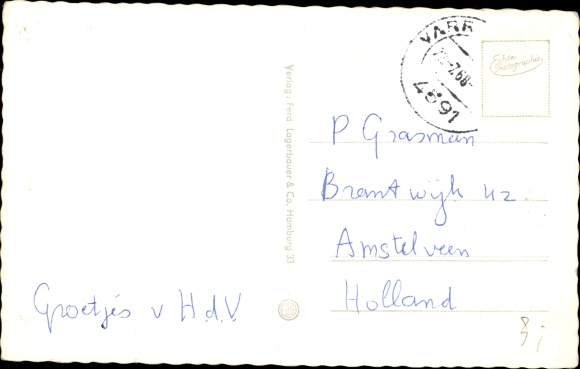 VARR
.7.68-
4891
Echte
Photographie
Verlag: Ferd. Lagerbauer & Co. Hamburg 33
P Grasman
Brantwijk 42
Amstelveen
Holland
Groetjes v H.d.V.